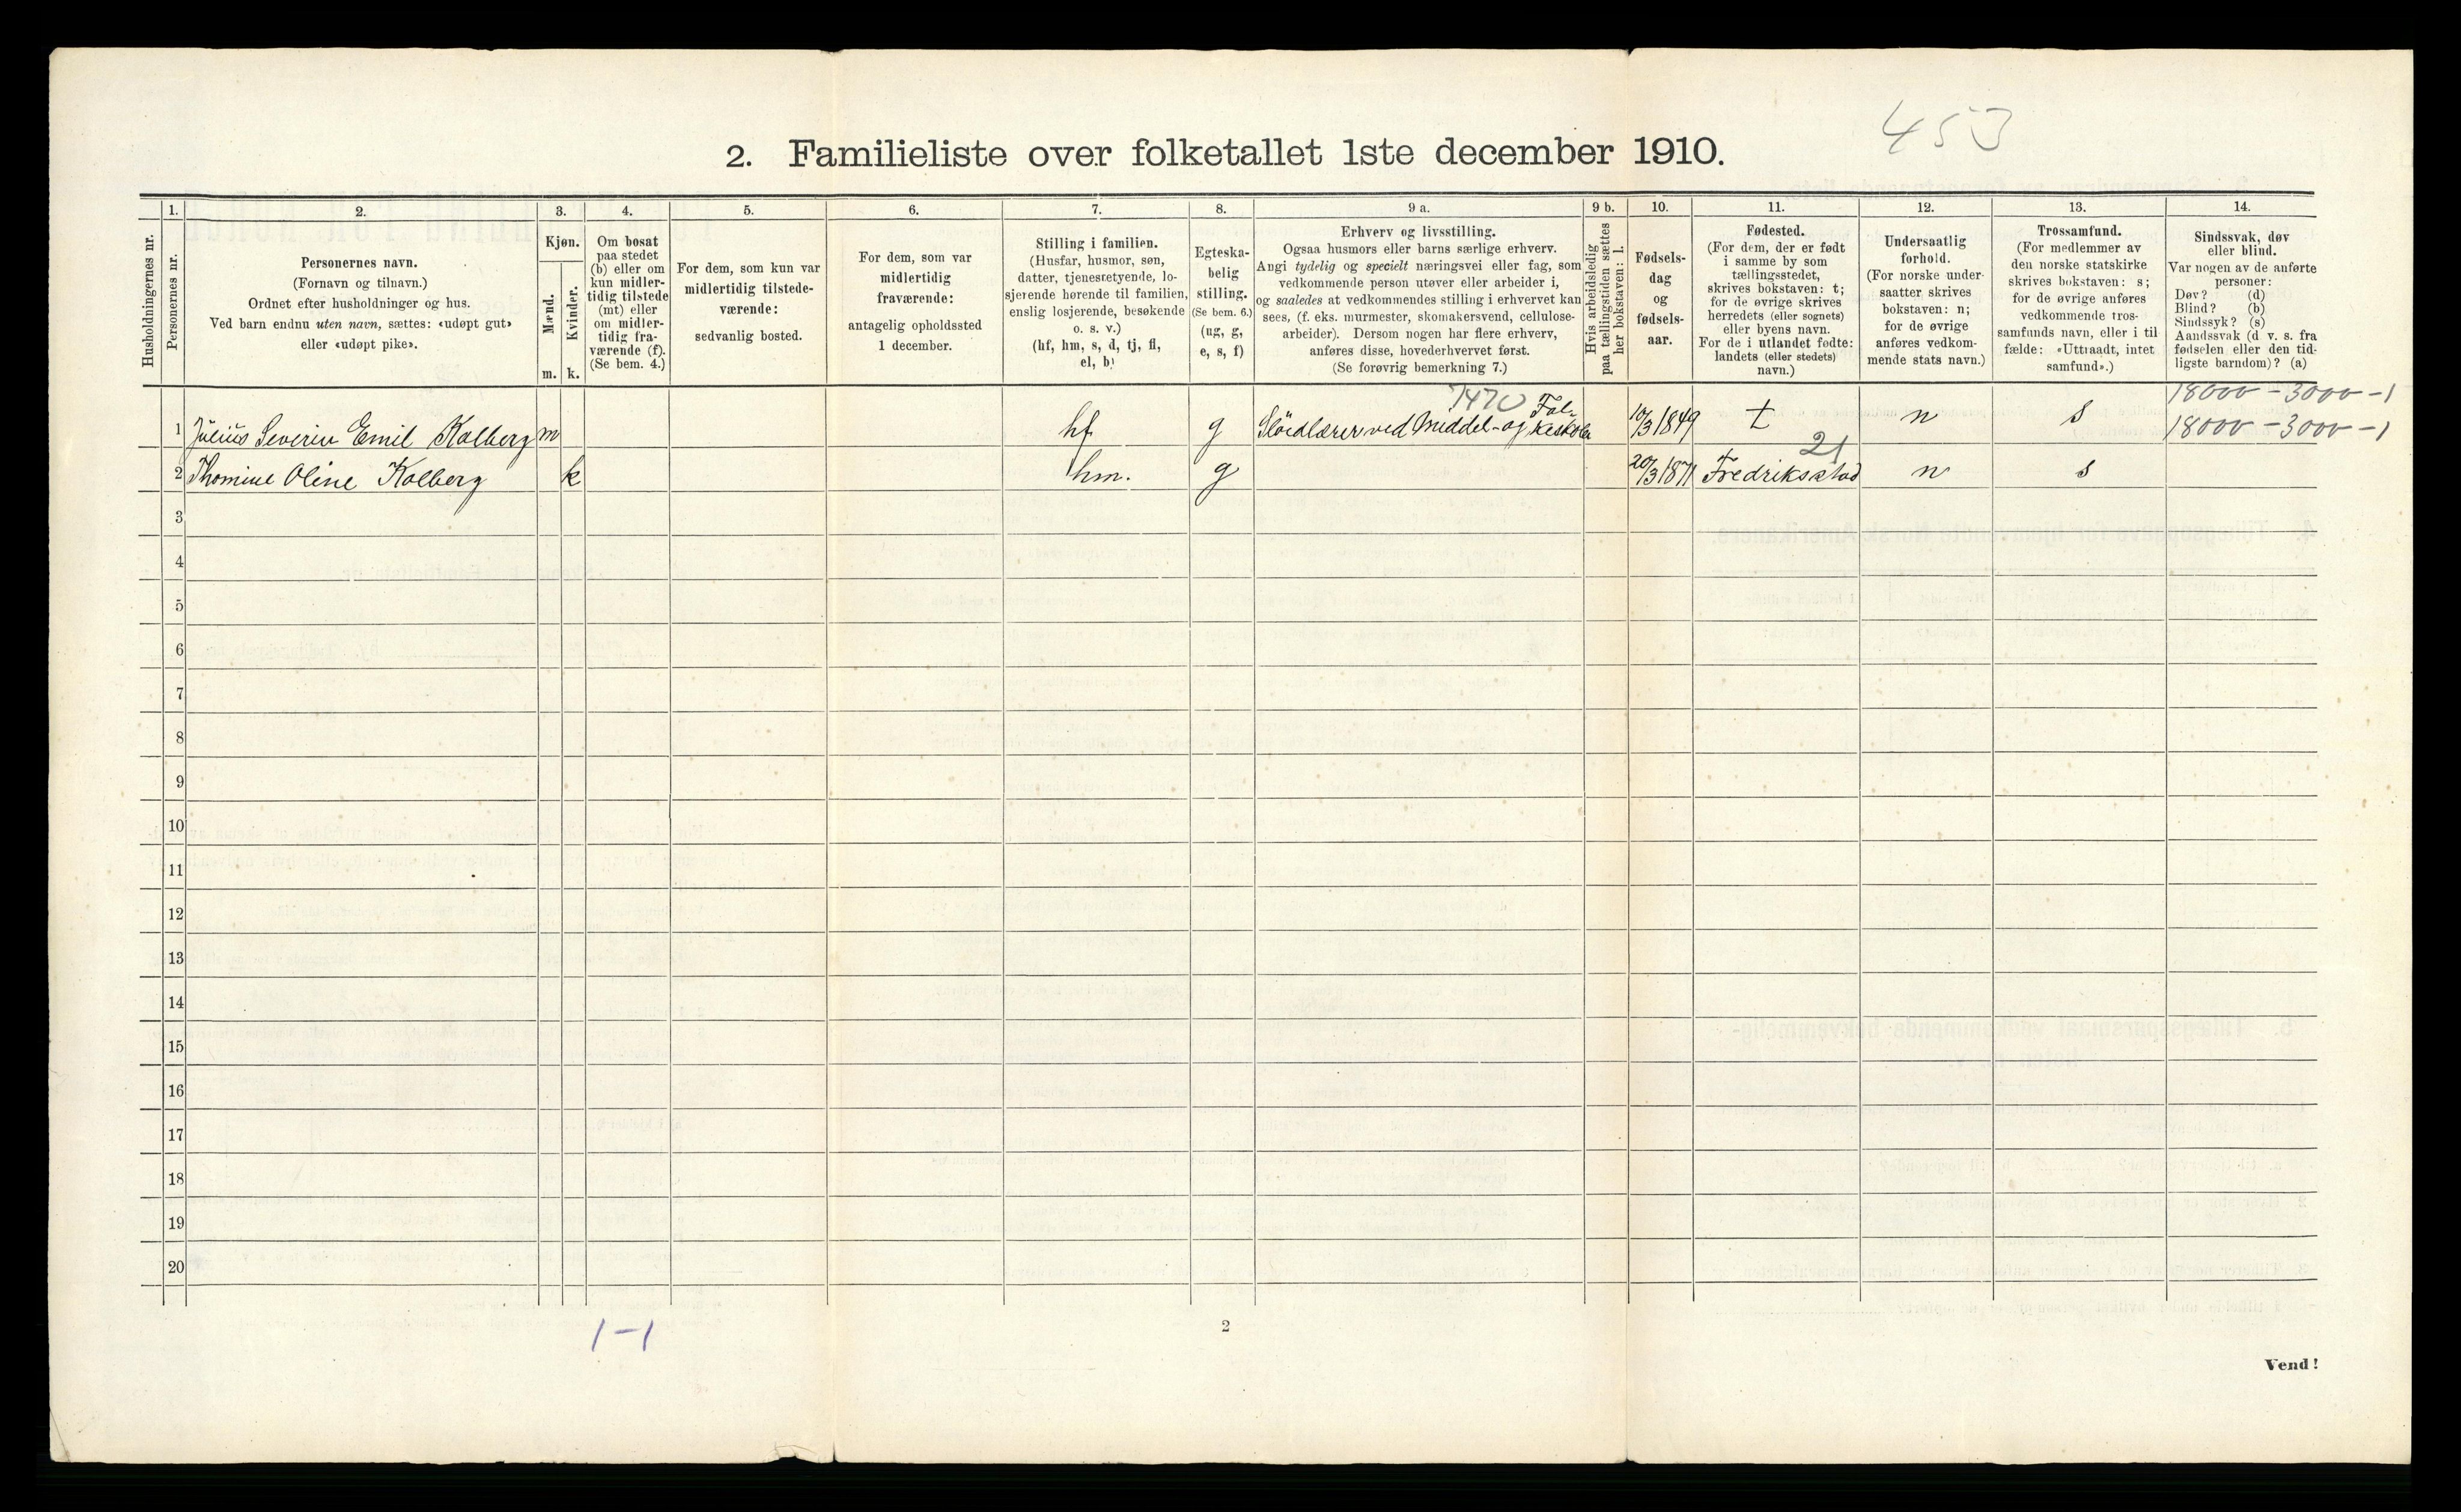 453
2. Familieliste over folketallet 1ste december 1910.
Husholdningernes nr.
1.
Personernes nr.
2.
Personernes navn.
(Fornavn og tilnavn.)
Ordnet efter husholdninger og hus.
Ved barn endnu uten navn, sættes: «udøpt gut»
eller «udøpt pike».
3.
Kjøn.
Mænd.
Kvinder.
m. k.
4.
Om bosat
paa stedet
(b) eller om
kun midler-
tidig tilstede
(mt) eller
om midler-
tidig fra-
værende (f).
(Se bem. 4.)
5.
For dem, som kun var
midlertidig tilstede-
værende:
sedvanlig bosted.
6.
For dem, som var
midlertidig
fraværende:
antagelig opholdssted
1 december.
7.
Stilling i familien.
(Husfar, husmor, søn,
datter, tjenestetyende, lo-
sjerende hørende til familien,
enslig losjerende, besøkende
o. s. v.)
(hf, hm, s, d, tj, fl,
el, b)
8.
Egteska-
belig
stilling.
(Se bem. 6.)
(ug, g,
e, s, f)
9 a.
Erhverv og livsstilling.
Ogsaa husmors eller barns særlige erhverv.
Angi tydelig og specielt næringsvei eller fag, som
vedkommende person utøver eller arbeider i,
og saaledes at vedkommendes stilling i erhvervet kan
sees, (f. eks. murmester, skomakersvend, cellulose-
arbeider). Dersom nogen har flere erhverv,
anføres disse, hovederhvervet først.
(Se forøvrig bemerkning 7.)
9 b.
Hvis arbeidsledig
paa tællingstiden sættes
her bokstaven: l.
10.
Fødsels-
dag
og
fødsels-
aar.
11.
Fødested.
(For dem, der er født
i samme by som
tællingsstedet,
skrives bokstaven: t;
for de øvrige skrives
herredets (eller sognets)
eller byens navn.
For de i utlandet fødte:
landets (eller stedets)
navn.)
12.
Undersaatlig
forhold.
(For norske under-
saatter skrives
bokstaven: n;
for de øvrige
anføres vedkom-
mende stats navn.)
13.
Trossamfund.
(For medlemmer av
den norske statskirke
skrives bokstaven: s;
for de øvrige anføres
vedkommende tros-
samfunds navn, eller i til
fælde: «Uttraadt, intet
samfund».)
14.
Sindssvak, døv
eller blind.
Var nogen av de anførte
personer:
Døv? (d)
Blind? (b)
Sindssyk? (s)
Aandssvak (d v. s. fra
fødselen eller den tid-
ligste barndom)? (a)
7470
18000 - 3000 - 1
1 Julius Severin Emil Kolberg m hf g Sløidlærer ved Middel- og Folkeskole 10/3 1849 t n s 18000 - 3000 - 1
21
2 Thomine Oline Kolberg k hm. g 20/3 1871 Fredriksstad n s
3
4
5
6
7
8
9
10
11
12
13
14
15
16
17
18
19
20
1-1
2
Vend!